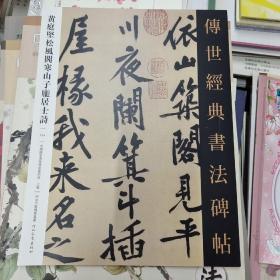 傳世經典書法碑帖
黃庭堅松風閣寒山子龐居士詩
依山築閣見平
川夜闌箕斗插
屋椽我来名之